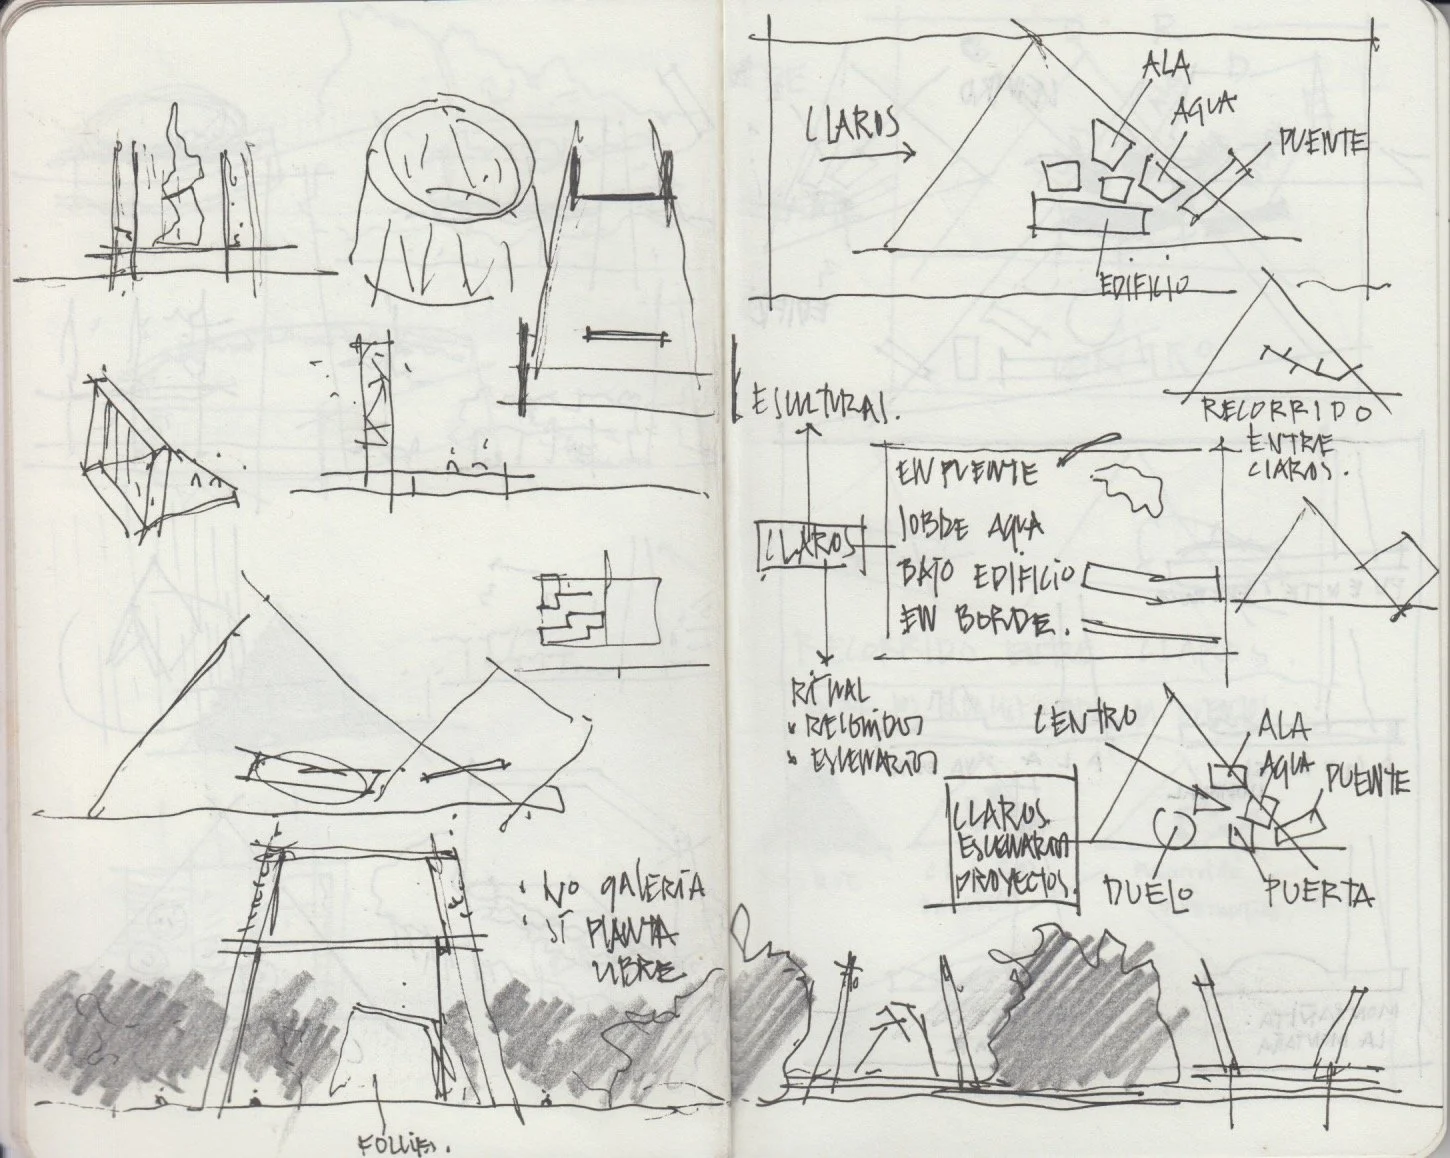 NO GALERÍA
SÍ PLANTA
LIBRE
FOLLIES.
CLAROS
ALA
AGUA
PUENTE
EDIFICIO
RECORRIDO
ENTRE
CLAROS.
ESCULTURAS.
CLAROS
EN PUENTE
BORDE AGUA
BAJO EDIFICIO
EN BORDE.
RITUAL
RECORRIDOS
ESCENARIOS
CENTRO
ALA
AGUA
PUENTE
CLAROS
ESCENARIOS
PROYECTOS.
DUELO
PUERTA